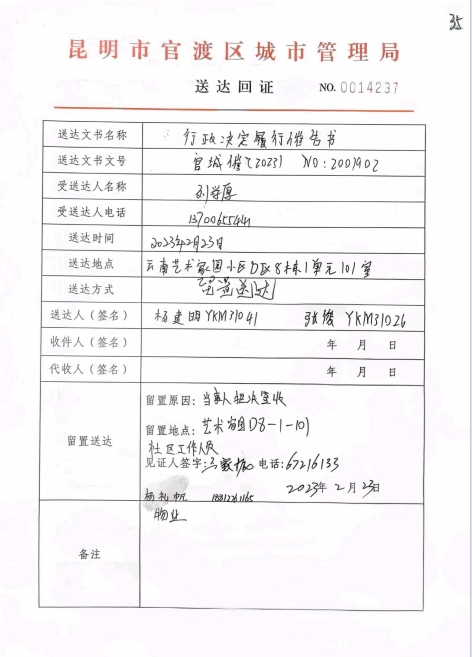 35
昆明市官渡区城市管理局
送达回证 NO. 0014237
送达文书名称 行政决定履行催告书
送达文书文号 官城催(2023) NO:2001902
受送达人名称
受送达人电话 13700655444
送达时间 2023年2月23日
送达地点 云南艺术家园小区D区8栋1单元101室
送达方式 留置送达
送达人（签名） 杨建明YKM31041 张俊 YKM31026
收件人（签名） 年 月 日
代收人（签名） 年 月 日
留置送达
留置原因：当事人拒决签收
留置地点：艺术家园D8-1-101
社区工作人员
见证人签字： 电话：67216133
2023年2月23日
杨礼帆
备注
物业